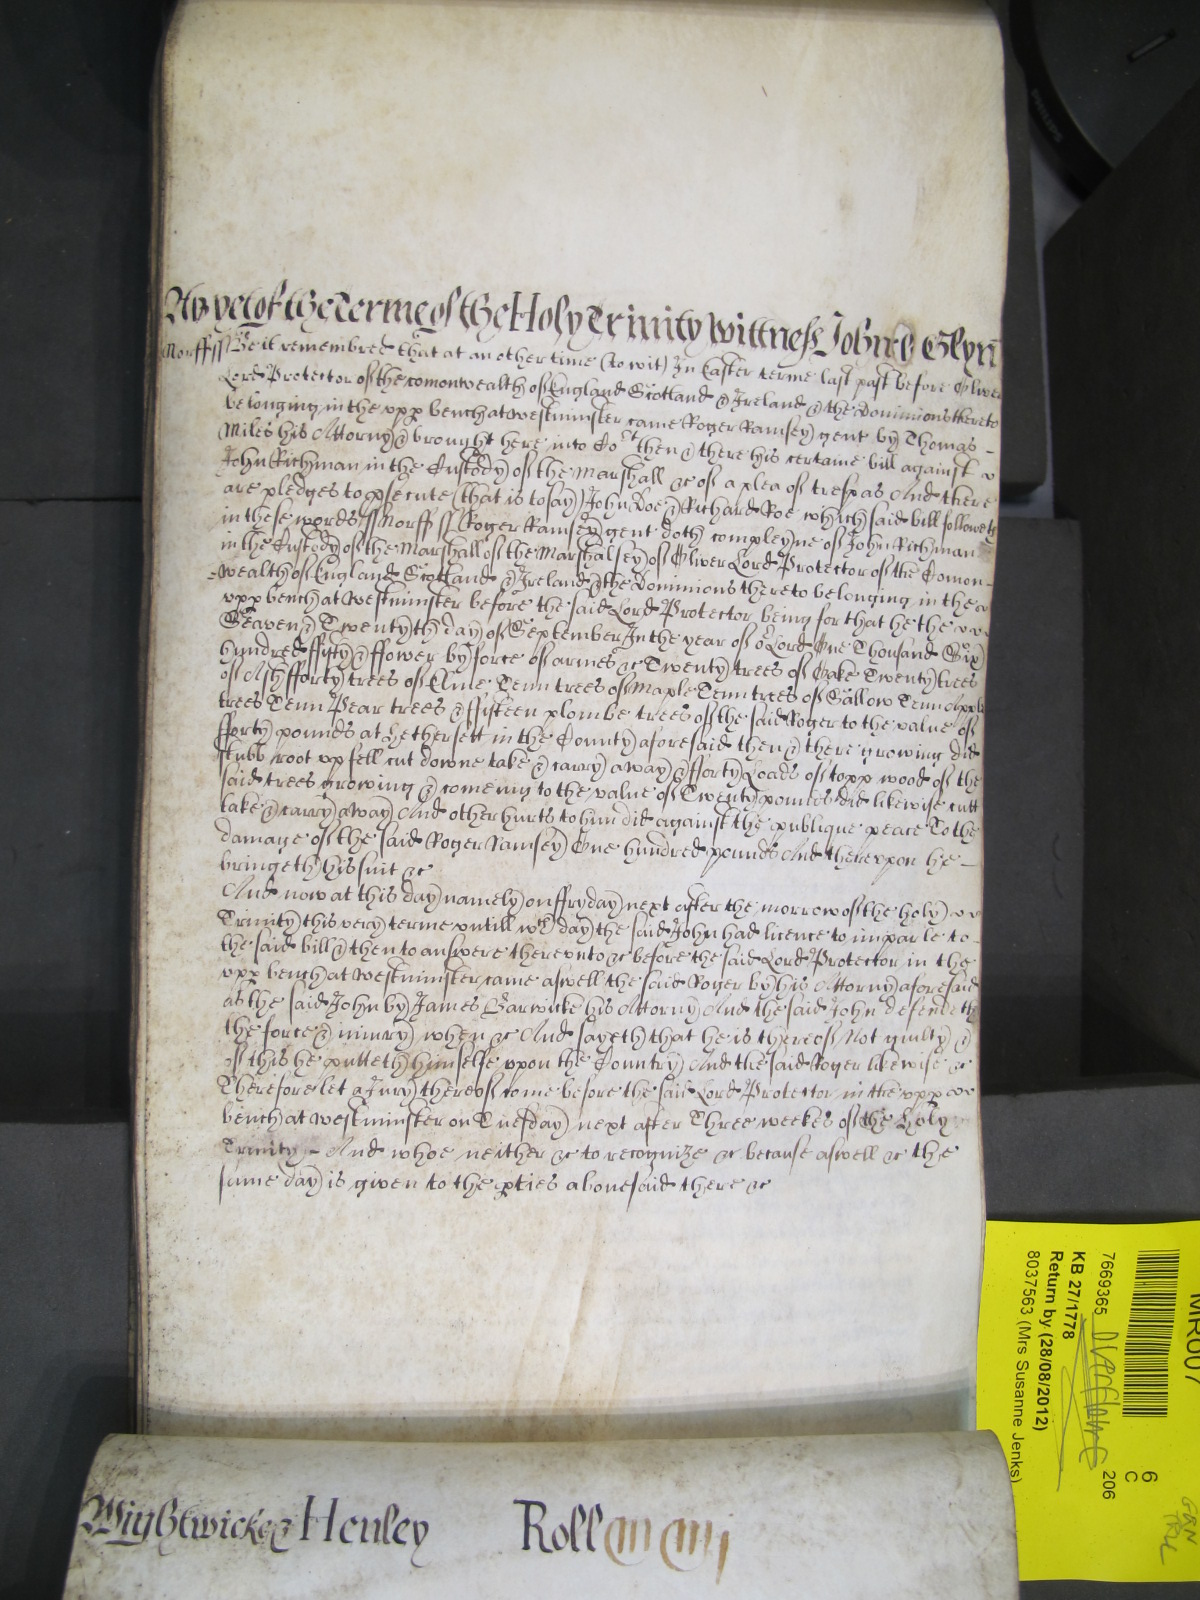 As yet of the Terme of the Holy Trinity Wittness John Glyn
Norff ss Be it remembred that at an other time (to wit) In Easter terme last past before Oliver
Lord Protector of the comonwealth of England Scotland & Ireland & the Dominions thereto
belonging in the upp bench at Westminster came Roger Ramsey gent by Thomas
Miles his Attorny & brought here into Cort then & there his certaine bill against
John Richman in the Custody of the Marshall &c of a plea of trespas And there
are pledges to psecute (that is to say) John Doe & Richard Roe which said bill followeth
in these words ss Norff ss Roger Ramsey gent doth compleyne of John Richman
in the Custody of the Marshall of the Marshalsey of Oliver Lord Protector of the Comon-
-wealth of England Scotland & Ireland & the Dominions thereto belonging in the
upp bench at Westminster before the said Lord Protector being for that he the
Seaven & Twentyth day of September In the year of or Lord One Thousand Six
hundred ffifty & ffower by force of armes &c Twenty trees of Oake Twenty trees
of Ash fforty trees of Elme Tenn trees of Maple Tenn trees of Sallow Tenn Apple
trees Tenn Pear trees & ffifteen plombe trees of the said Roger to the value of
fforty pounds at Hethersett in the County aforesaid then & there growing did
stubb root up fell cut downe take & carry away & fforty Loads of topp wood of the
said trees growing & comeing to the value of Twenty pounds did likewise cutt
take & carry away And other hurts to him did against the publique peace To the
damage of the said Roger Ramsey One hundred pounds And thereupon he
bringeth his suit &c
And now at this day namely on ffryday next after the morrow of the holy
Trinity this very terme untill wch day the said John had licence to imparle to
the said bill & then to answere thereunto &c before the said Lord Protector in the
upp bench at Westminster came aswell the said Roger by his Attorny aforesaid
as the said John by James Barwicke his Attorny And the said John defendeth
the force & iniury when &c And sayeth that he is thereof Not guilty &
of this he putteth himselfe upon the Country And the said Roger likewise &c
Therefore let a Jury thereof come before the said Lord Protector in the upp
bench at Westminster on Tuesday next after Three weekes of the Holy
Trinity And whoe neither &c to recognize &c because aswell &c the
same day is given to the pties abovesaid there &c
Wightwicke & Henley Roll
MR007
6
C
7669365 206
KB 27/1778
Return by (28/08/2012)
8037563 (Mrs Susanne Jenks)
PHILIPS